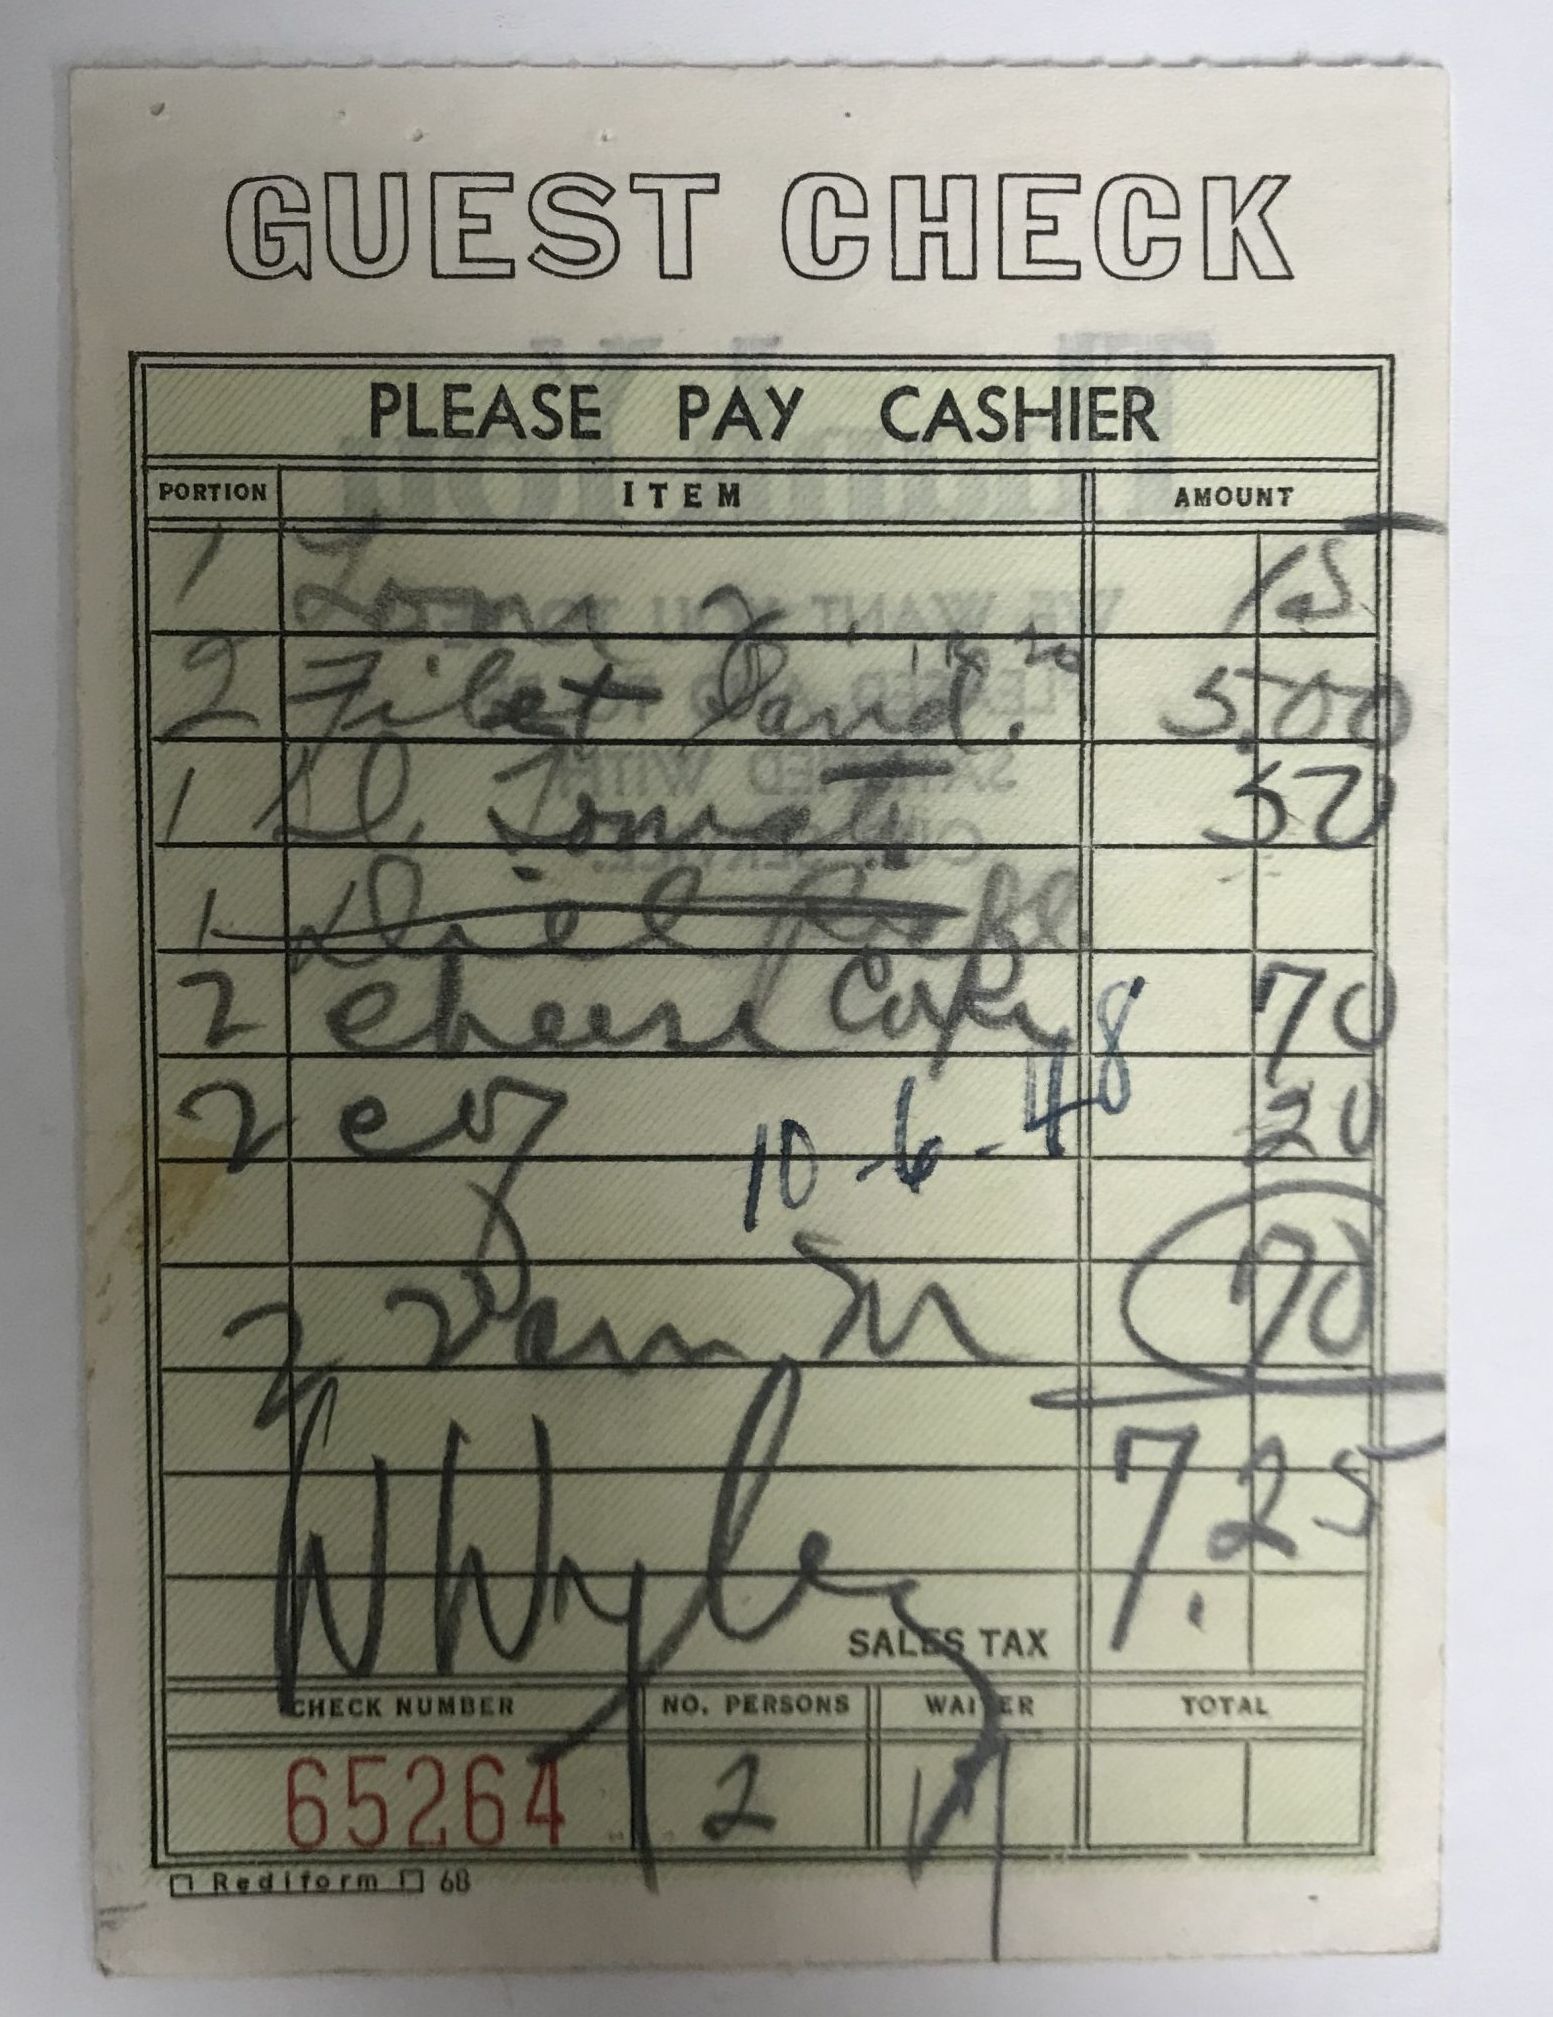 GUEST CHECK
PLEASE PAY CASHIER
PORTION ITEM AMOUNT
1 15
2 Filet Sand. 5.00
1 Sl. Tomat 50
1
2 cheese Cake 70
2 20
10-6-48
2 70
7.25
W Wyler
SALES TAX
CHECK NUMBER NO. PERSONS WAITER TOTAL
65264 2
Rediform 68